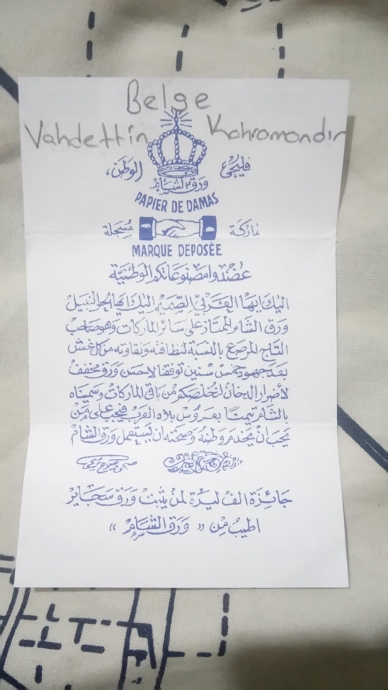 Belge
Vahdettin Kahramandır
فليحيى الوطن،
ورق الشام
PAPIER DE DAMAS
ماركة مسجلة
MARQUE DEPOSÉE
عضدوا مصنوعاتكم الوطنية
اليك ايها العربي الصميم اليك ايها الحر النبيل
ورق الشام الممتاز على سائر الماركات وهو صاحب
التاج المرصع بالنسبة لنظافته ونقاوته من كل غش
بعد جهود خمس سنين توفقنا لاحسن ورق مخفف
لأضرار الدخان لنخلصكم من باقي الماركات وسميناه
بالشام تيمنا بفردوس بلاد العرب فيجب على من
يحب ان يخدم وطنه وصحته ان يستعمل ورق الشام
جائزة الف ليرة لمن يثبت ورق سجاير
اطيب من « ورق الشام »